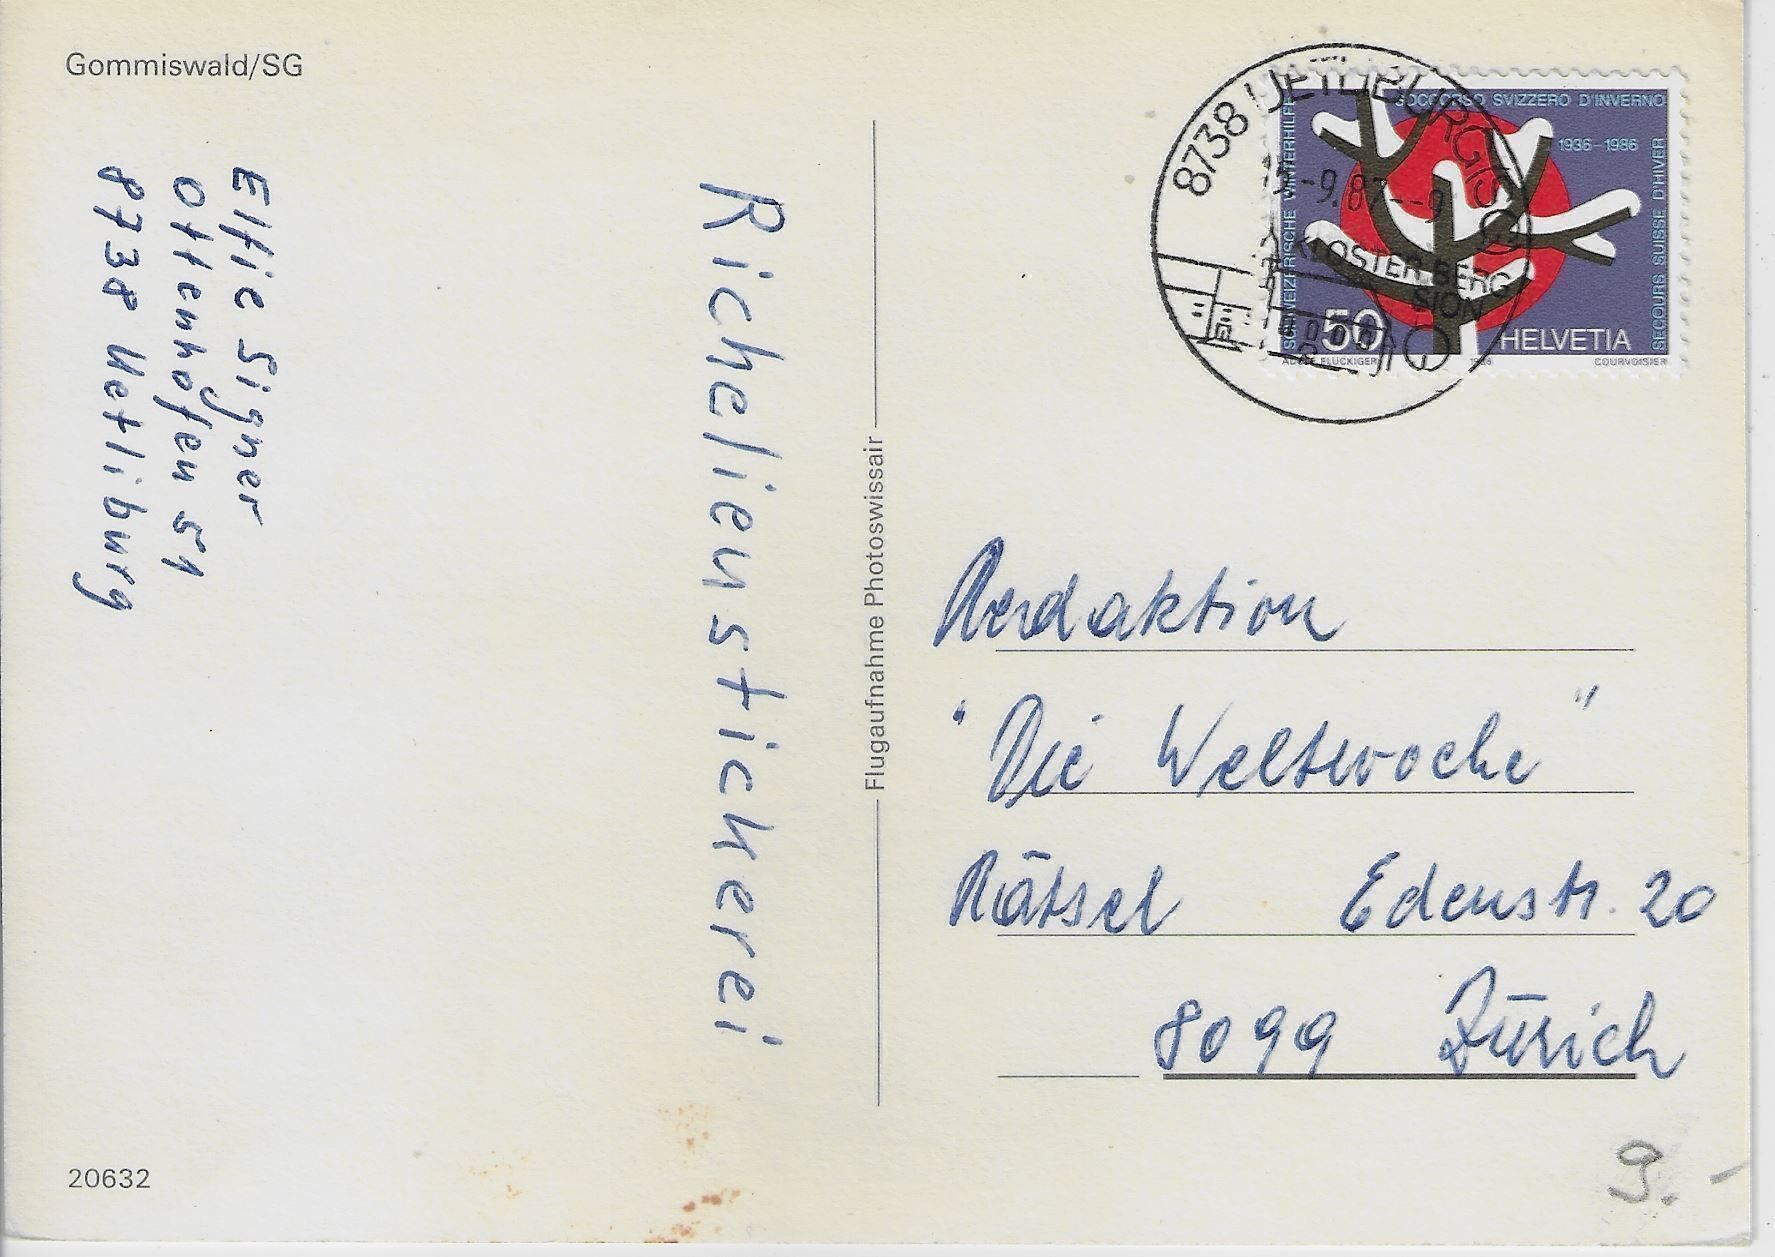 Gommiswald/SG
Elfie Signer
Ottenhofen 51
8738 Uetliburg
Richelieustickerei
Flugaufnahme Photoswissair
8738 UETLIBURG SG
-9.87--9
KLOSTER BERG
SION
SOCCORSO SVIZZERO D'INVERNO
1936-1986
SCHWEIZERISCHE WINTERHILFE
SECOURS SUISSE D'HIVER
50
HELVETIA
ADOLF FLÜCKIGER
1986
COURVOISIER
Redaktion
"Die Weltwoche"
Rätsel Edenstr. 20
8099 Zürich
20632
9.-